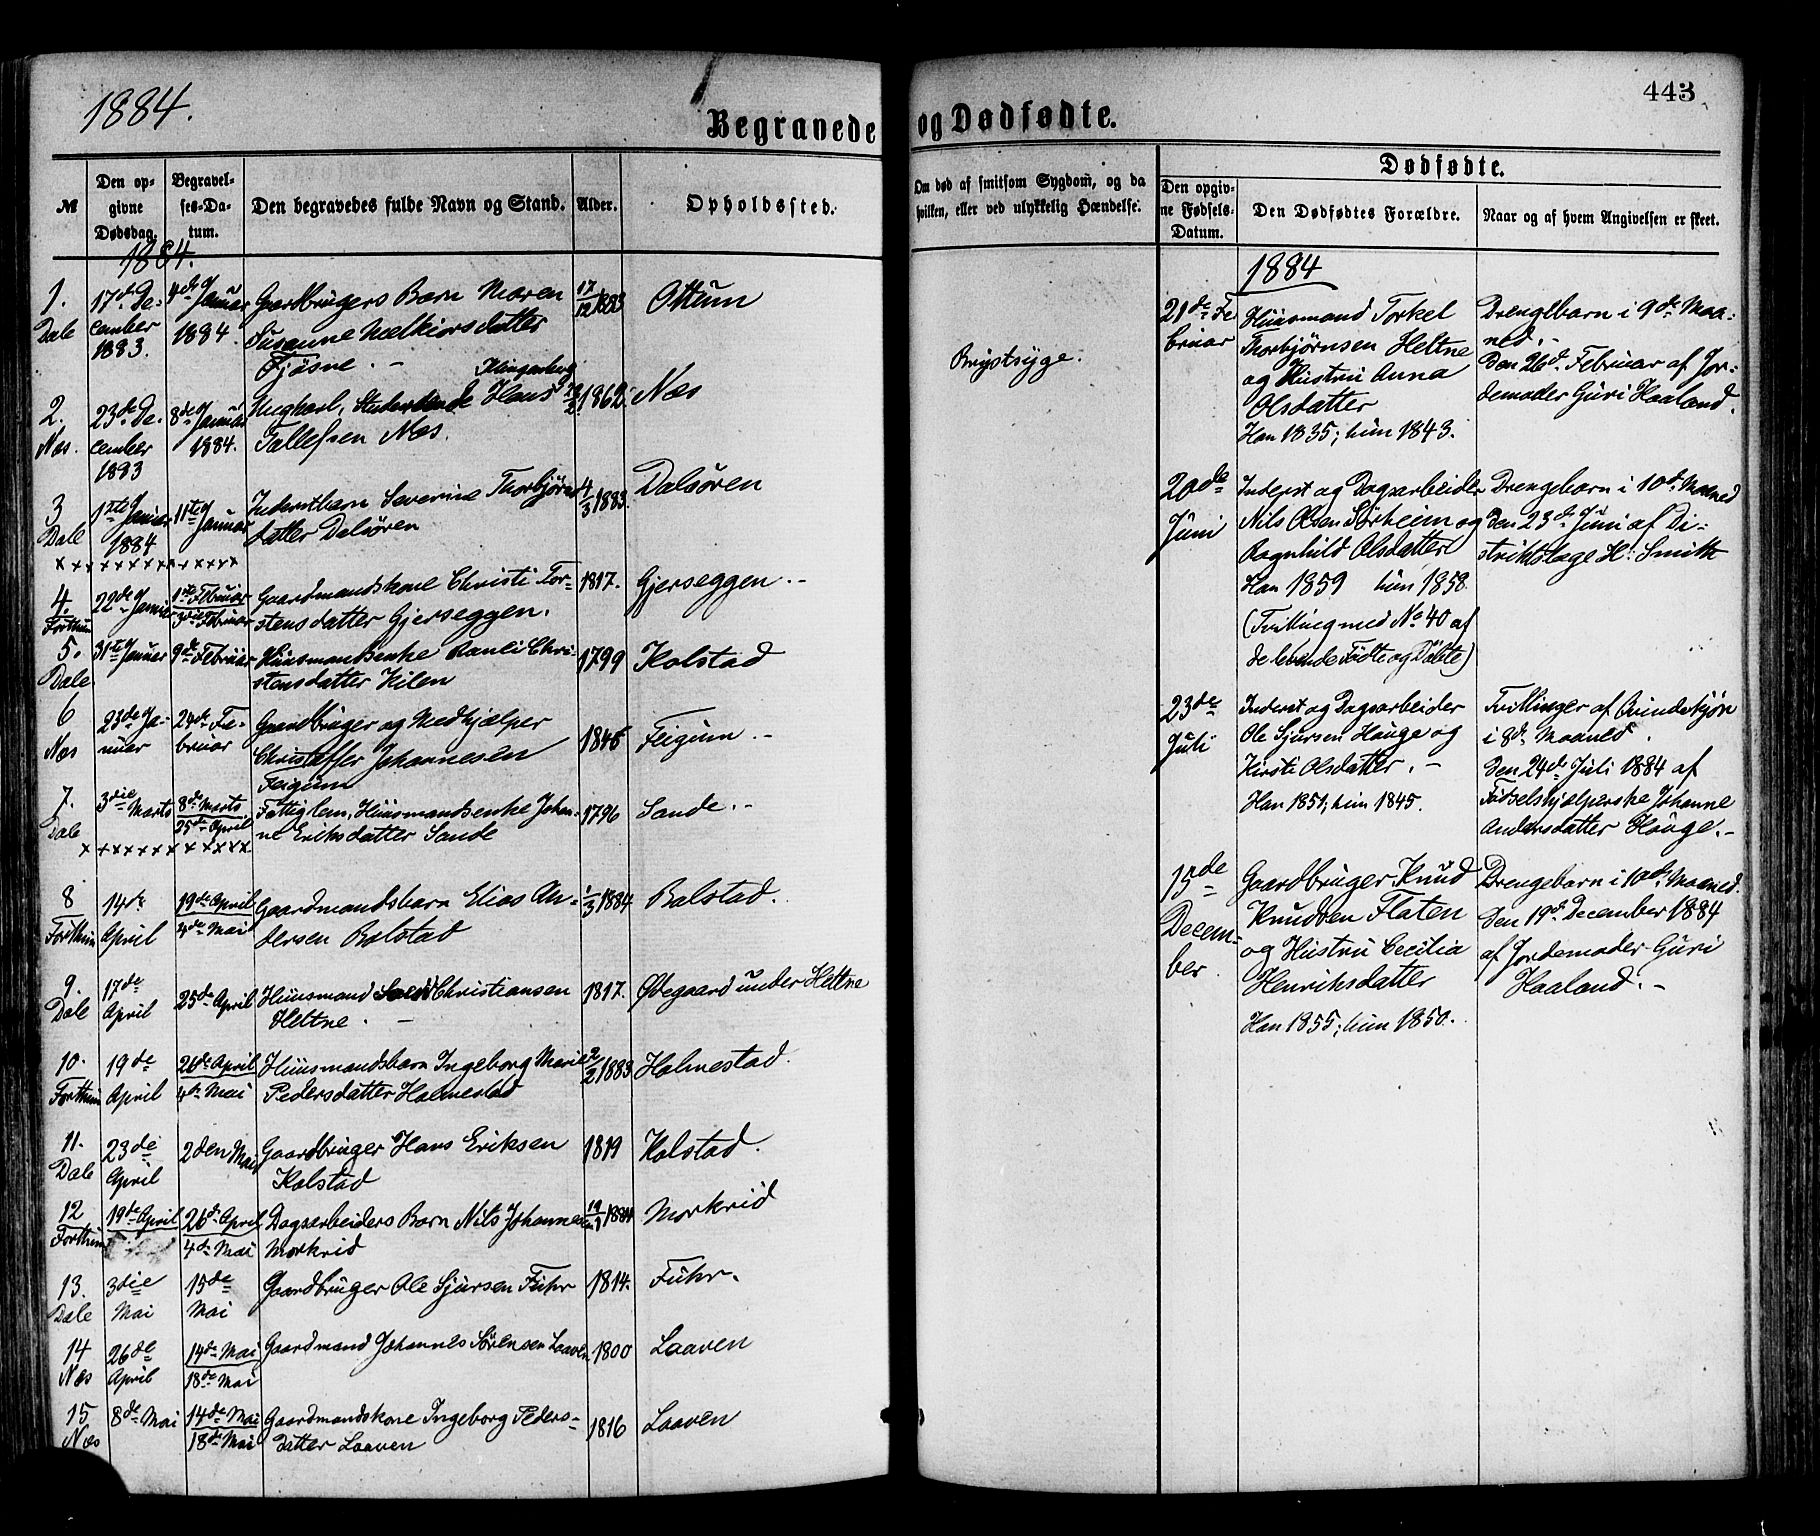 1884.
Begravede
№
Den opgivne Dødsdag.
Begravelses-Datum.
Den begravedes fulde Navn og Stand.
Alder.
Opholdssted.
1884.
1. Dale
17de December 1883.
4de Januar 1884.
Gaardbrugers Barn Maren
Susanne Melkiorsdatter
Fjøsne. –
17/12 1883
Ottum
2. Næs.
23de December 1883
8de Januar 1884.
Ungkarl, Studerende Hans Klingenberg
Tollefsen Næs.
1862.
Næs
3 Dale
1ste Januar 1884
11te Januar
Inderstbarn Severine Thorbjørns-
datter Dalsøren
4/3 1883.
Dalsøren
x x x x x x x x x x x x x
4. Forthun
22de Januar
1ste Februar
3die Februar
Gaardmandskone Christi Tor-
stensdatter Gjerseggen.
1817.
Gjerseggen. –
5. Dale
31te Januar
9de Februar
Huusmandsenke Ranei Chri-
stensdatter Kilen
1799
Kolstad
6 Næs
23de Januar
24de Februar
Gaardbruger og Medhjælper
Christoffer Johannesen
Feigum
1846
Feigum. –
7. Dale
3die Marts
8de Marts
25de April
Fattiglem, Huusmandsenke Johan-
ne Eriksdatter Sande
1796
Sande. –
x x x x x x x x x x x x
8 Forthun
14de April
19de April
4de Mai
Gaardmandsbarn Elias An-
dersen Bolstad
1/3 1884
Bolstad.
9. Dale
17de April
25de April
Huusmand Christiansen
Heltne. –
1817.
Ødegaard under Heltne
10. Forthun
19de April
26de April
4de Mai
Huusmandsbarn Ingeborg Marie
Pedersdatter Holmestad
2/2 1883
Holmestad.
11. Dale
23de April
2den Mai
Gaardbruger Hans Eriksen
Kolstad
1819
Kolstad.
12 Forthun
19de April
26de April
4de Mai
Dagsarbeiders Barn Nils Johannesen
Morkrid
1884
Morkrid
13. Dale
3die Mai
15de Mai
Gaardbruger Ole Sjursen Fuhr
1814.
Fuhr.
14 Næs
26de April
14de Mai
18de Mai
Gaardmand Johannes Sørensen Laaven
1800
Laaven
15 Næs
8de Mai
14de Mai
18de Mai
Gaardmandskone Ingeborg Peders-
datter Laaven
1816
Laaven
443
og Dødfødte.
Om død af smitsom Sygdom, og da
hvilken, eller ved ulykkelig Hændelse.
Dødfødte.
Den opgivne Fødsels-Datum.
Den Dødfødtes Forældre.
Naar og af hvem Angivelsen er skeet.
Brystsyge.
1884
21de Februar
Huusmand Torkel
Thorbjørnsen Heltne
og Hustru Anna
Olsdatter
Han 1835; hun 1843.
Drengebarn i 9de Maa-
ned. –
Den 26de Februar af Jor-
demoder Guri Haaland.
20de Juni
Inderst og Dagsarbeider
Nils Olsen Sørheim og
Ragnhild Olsdatter
Han 1859 hun 1858.
(Tvilling med No 40 af
de levende Fødte og Døbte)
Drengebarn i 10de Maaned
Den 23de Juni af Di-
striktslæge H. Smith
23de Juli
Inderst og Dagsarbeider
Ole Sjursen Hauge og
Kirsti Olsdatter. –
Han 1851; hun 1845.
Tvillinger af Qvindekjøn
i 8de Maaned.
Den 24de Juli 1884 af
Fødselshjælperske Johanne
Andersdatter Hauge. –
15de December
Gaardbruger Knud
Knudsen Flaten
og Hustru Cecilia
Henriksdatter
Han 1855; hun 1850.
Drengebarn i 10de Maaned.
Den 19de December 1884
af Jordemoder Guri
Haaland. –